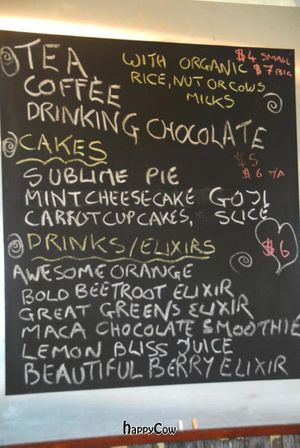 TEA
COFFEE
DRINKING CHOCOLATE
WITH ORGANIC
RICE, NUT OR COWS
MILKS
$4 SMALL
$7 BIG
CAKES
$5
$6 T/A
SUBLIME PIE
MINT CHEESECAKE GOJI
CARROT CUPCAKES, SLICE
DRINKS/ELIXIRS
$6
AWESOME ORANGE
BOLD BEETROOT ELIXIR
GREAT GREENS ELIXIR
MACA CHOCOLATE SMOOTHIE
LEMON BLISS JUICE
BEAUTIFUL BERRY ELIXIR
happyCow